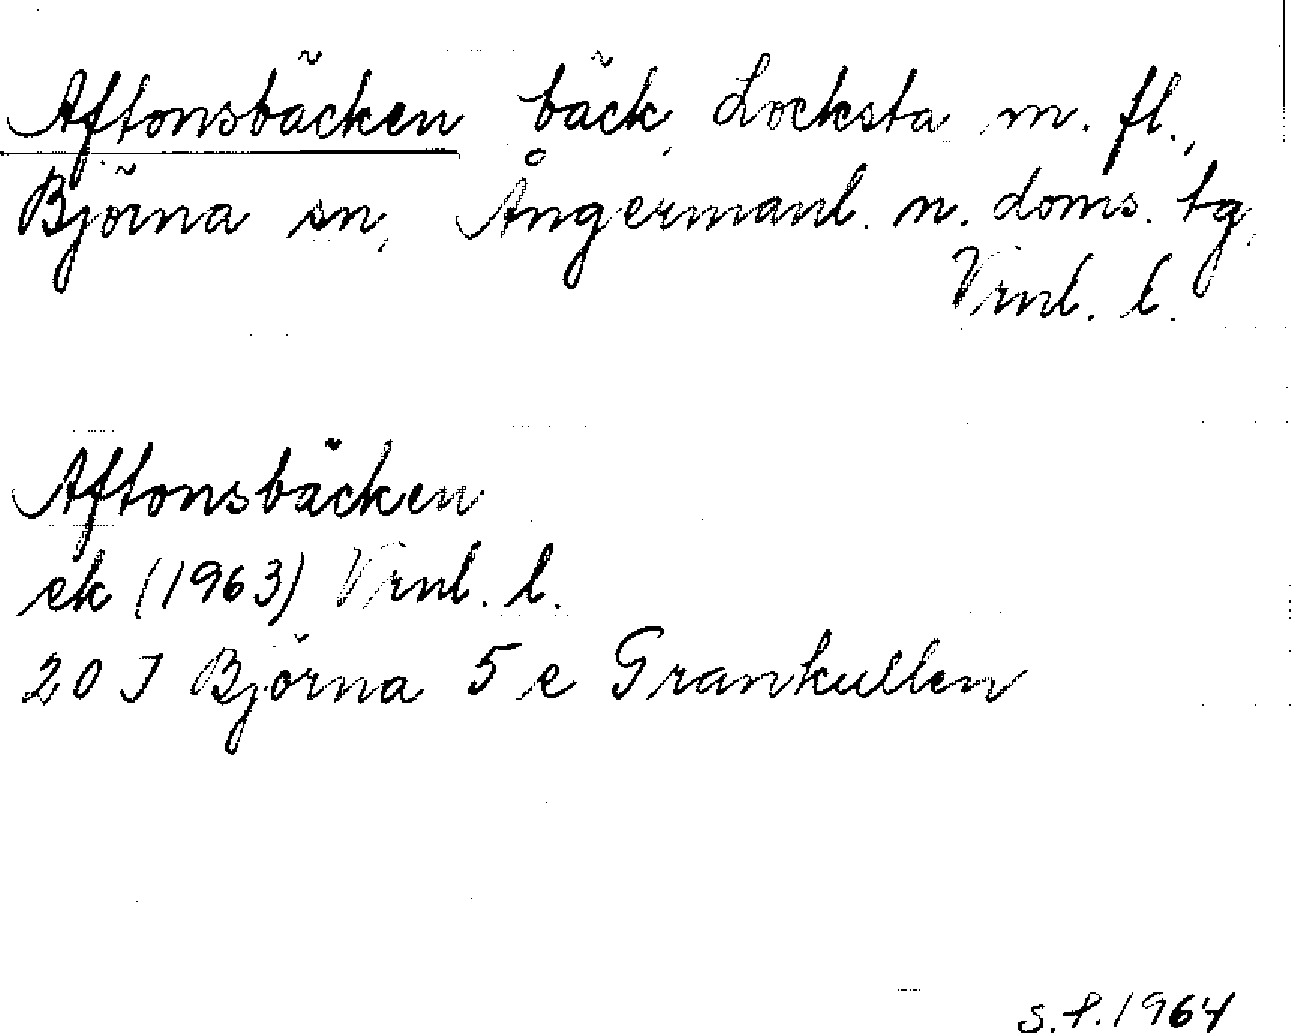 Aftonsbäcken bäck, Locksta m. fl.,
Björna sn, Ångermanl. n. doms. tg,
Vrnl. l.
Aftonsbäcken
ek (1963) Vrnl. l.
20 J Björna 5 e Grankullen
s. f. 1964